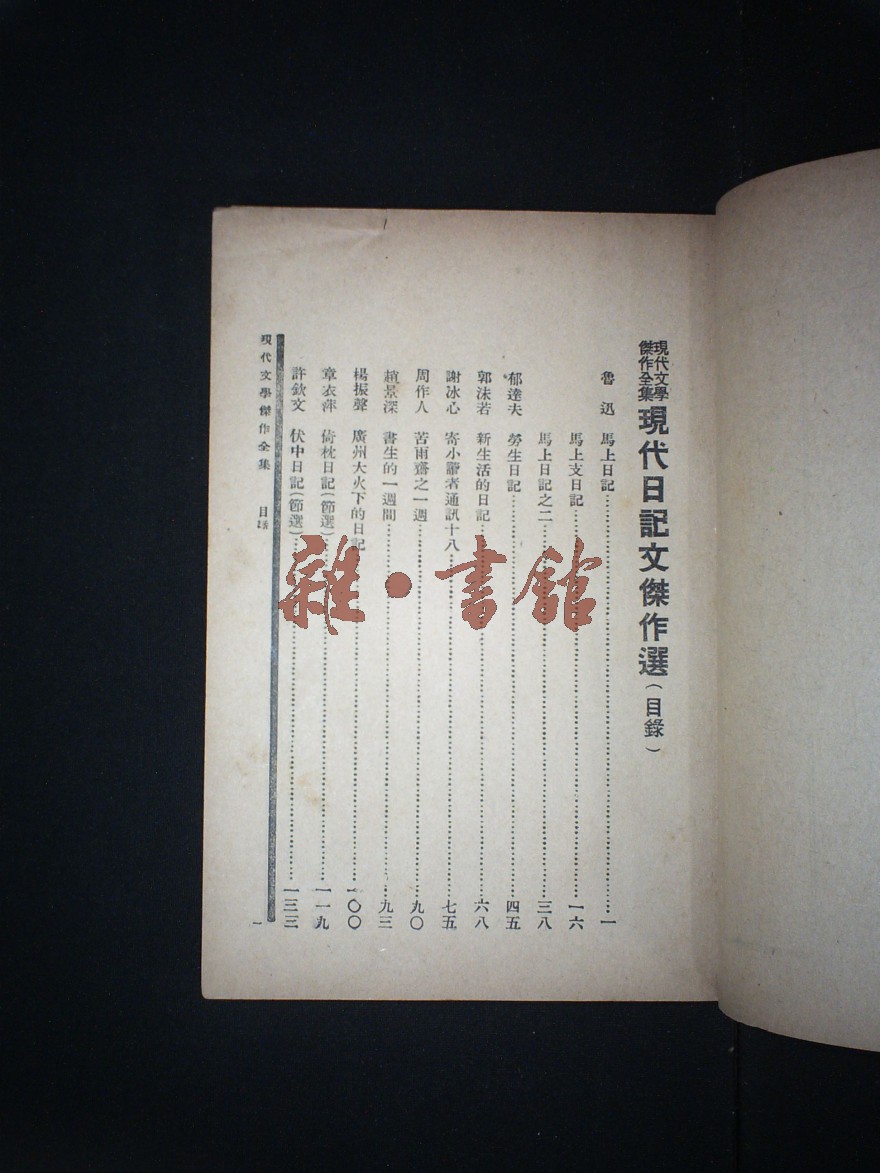 現代文學傑作全集 現代日記文傑作選(目錄)
魯迅 馬上日記…………一
馬上支日記…………一六
馬上日記之二…………三八
郁達夫 勞生日記…………四五
郭沫若 新生活的日記…………六八
謝冰心 寄小讀者通訊十八…………七五
周作人 苦雨齋之一週…………九〇
趙景深 書生的一週間…………九三
楊振聲 廣州大火下的日記…………一〇〇
章衣萍 倚枕日記(節選)…………一一九
許欽文 伏中日記(節選)…………一三三
現代文學傑作全集 目錄 一
雜·書館